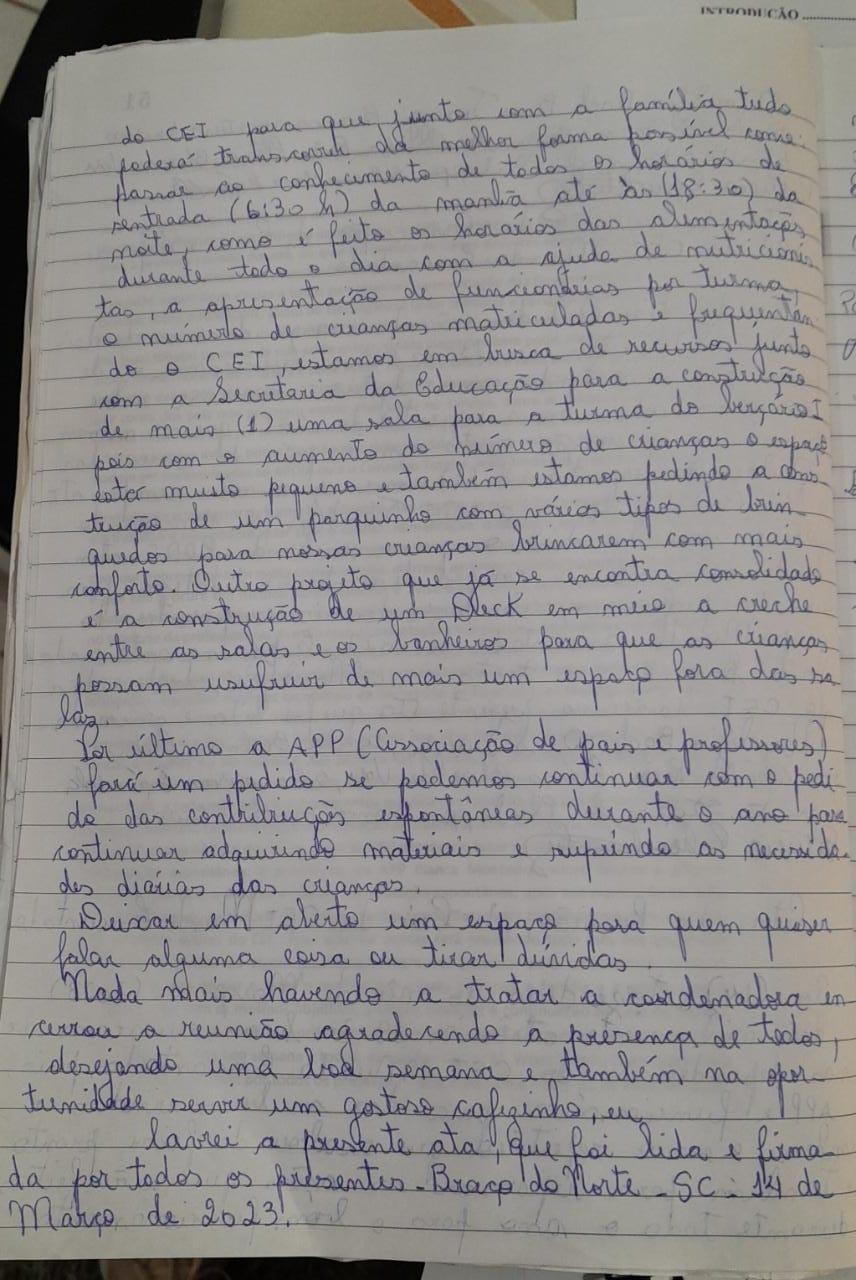 INTRODUÇÃO
do CEI para que junto com a família tudo
poderá transcorrer da melhor forma possível como:
passar ao conhecimento de todos os horários de
sentrada (6:30 h) da manhã até às (18:30) da
noite, como é feito os horários das alimentações
durante todo o dia com a ajuda de nutricionis
tas, a apresentação de funcionárias por turma,
o número de crianças matriculadas e frequentan
do o CEI, estamos em busca de recursos junto
com a Secretaria da Educação para a construção
de mais (1) uma sala para a turma do berçário I
pois com o aumento do número de crianças o espaço
estar muito pequeno e também estamos pedindo a cons
trução de um parquinho com vários tipos de brin
quedos para nossas crianças brincarem com mais
conforto. Outro projeto que já se encontra consolidado
é a construção de um Deck em meio a creche
entre as salas e os banheiros para que as crianças
possam usufruir de mais um espaço fora das sa
las.
Por último a APP (Associação de pais e professores)
fará um pedido se podemos continuar com o pedi
do das contribuições espontâneas durante o ano para
continuar adquirindo materiais e suprindo as necessida-
des diárias das crianças.
Deixar em aberto um espaço para quem quiser
falar alguma coisa ou tirar dúvidas.
Nada mais havendo a tratar a coordenadora en
cerrou a reunião agradecendo a presença de todos,
desejando uma boa semana e também na opor-
tunidade servir um gostoso cafezinho, eu
lavrei a presente ata, que foi lida e firma-
da por todos os presentes - Braço do Norte - SC - 14 de
Março de 2023.